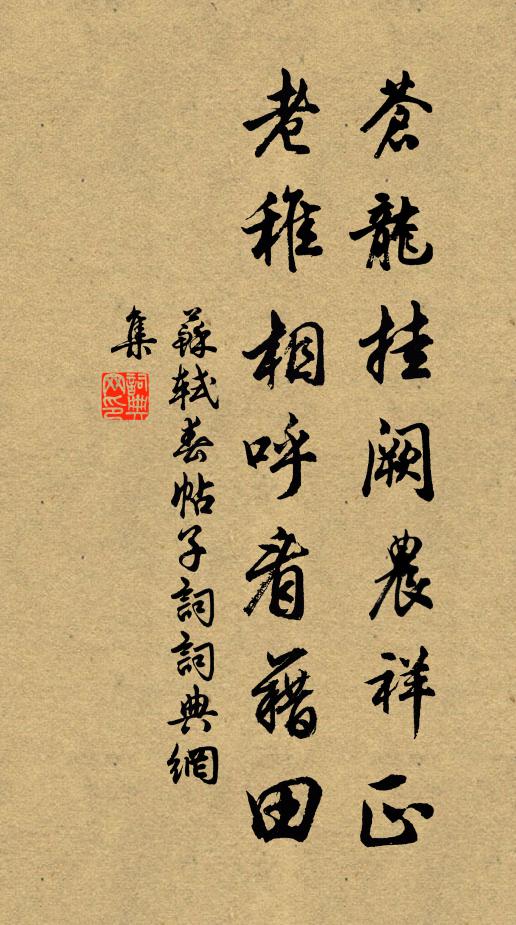 蒼龍挂闕農祥正
老稚相呼看藉田
蘇軾春帖子詞詞典網
集
詞典
网印